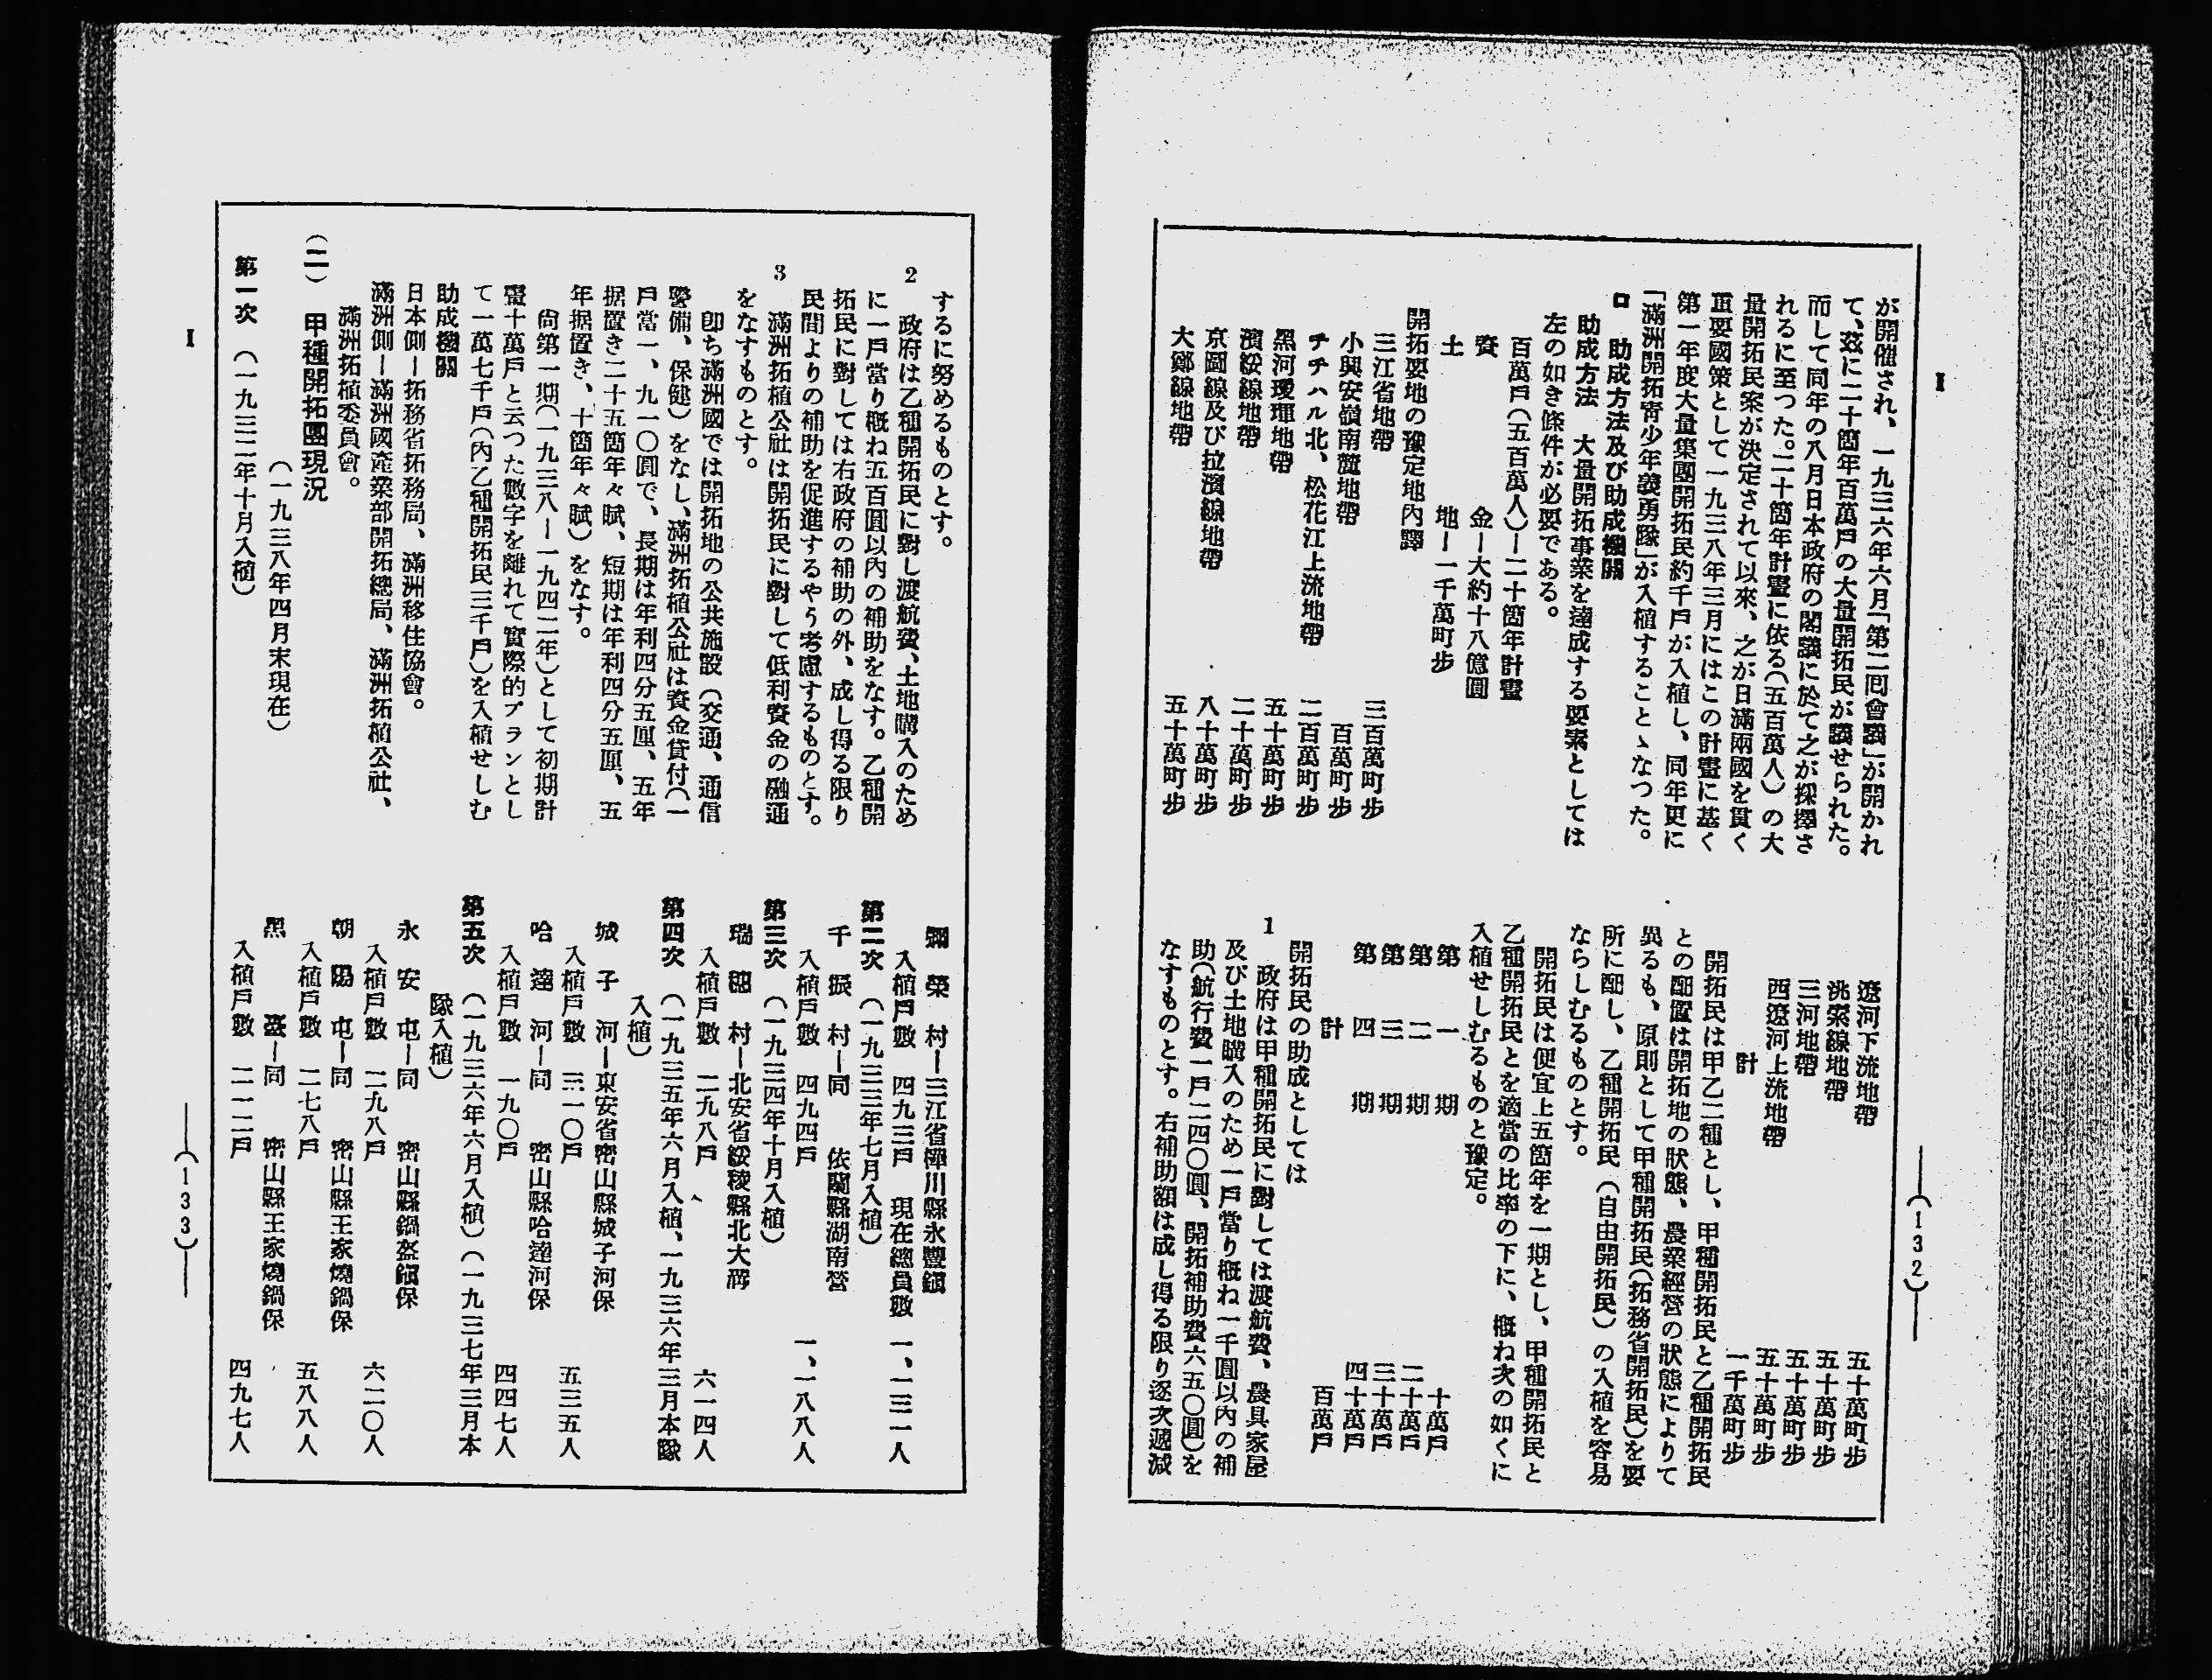 I
が開催され、一九三六年六月「第二囘會議」が開かれ
て、茲に二十箇年百萬戸の大量開拓民が議せられた。
而して同年の八月日本政府の閣議に於て之が採擇さ
れるに至つた。二十箇年計畫に依る(五百萬人)の大
量開拓民案が決定されて以來、之が日滿兩國を貫く
重要國策として一九三八年三月にはこの計畫に基く
第一年度大量集團開拓民約千戸が入植し、同年更に
「滿洲開拓靑少年義勇隊」が入植することゝなつた。
ロ 助成方法及び助成機關
助成方法 大量開拓事業を達成する要素としては
左の如き條件が必要である。
百萬戸(五百萬人)ー二十箇年計畫
資 金ー大約十八億圓
土 地ー一千萬町步
開拓要地の豫定地內譯
三江省地帶 三百萬町步
小興安嶺南麓地帶 百萬町步
チチハル北、松花江上流地帶 二百萬町步
黑河璦琿地帶 五十萬町步
濱綏線地帶 二十萬町步
京圖線及び拉濱線地帶 八十萬町步
大鄭線地帶 五十萬町步
遼河下流地帶 五十萬町步
洮索線地帶 五十萬町步
三河地帶 五十萬町步
西遼河上流地帶 五十萬町步
計 一千萬町步
開拓民は甲乙二種とし、甲種開拓民と乙種開拓民
との配置は開拓地の狀態、農業經營の狀態によりて
異るも、原則として甲種開拓民(拓務省開拓民)を要
所に配し、乙種開拓民(自由開拓民)の入植を容易
ならしむるものとす。
開拓民は便宜上五箇年を一期とし、甲種開拓民と
乙種開拓民とを適當の比率の下に、槪ね次の如くに
入植せしむるものと豫定。
第一期 十萬戸
第二期 二十萬戸
第三期 三十萬戸
第四期 四十萬戸
計 百萬戸
開拓民の助成としては
1 政府は甲種開拓民に對しては渡航費、農具家屋
及び土地購入のため一戸當り槪ね一千圓以內の補
助(航行費一戸二四〇圓、開拓補助費六五〇圓)を
なすものとす。右補助額は成し得る限り逐次遞減
(132)
するに努めるものとす。
2 政府は乙種開拓民に對し渡航費、土地購入のため
に一戸當り槪ね五百圓以內の補助をなす。乙種開
拓民に對しては右政府の補助の外、成し得る限り
民間よりの補助を促進するやう考慮するものとす。
3 滿洲拓植公社は開拓民に對して低利資金の融通
をなすものとす。
卽ち滿洲國では開拓地の公共施設(交通、通信
警備、保健)をなし、滿洲拓植公社は資金貸付(一
戸當一、九一〇圓で、長期は年利四分五厘、五年
据置き二十五箇年々賦、短期は年利四分五厘、五
年据置き、十箇年々賦)をなす。
尙第一期(一九三八ー一九四二年)として初期計
畫十萬戸と云つた數字を離れて實際的プランとし
て一萬七千戸(內乙種開拓民三千戸)を入植せしむ
助成機關
日本側ー拓務省拓務局、滿洲移住協會。
滿洲側ー滿洲國產業部開拓總局、滿洲拓植公社、
滿洲拓植委員會。
(二) 甲種開拓團現況
(一九三八年四月末現在)
第一次 (一九三二年十月入植)
彌榮村ー三江省樺川縣永豐鎭
入植戸數 四九三戸 現在總員數 一、一三一人
第二次 (一九三三年七月入植)
千振村ー同 依蘭縣湖南營
入植戸數 四九四戸 一、一八八人
第三次 (一九三四年十月入植)
瑞穗村ー北安省綏稜縣北大溝
入植戸數 二九八戸 六一四人
第四次 (一九三五年六月入植、一九三六年三月本隊
入植)
城子河ー東安省密山縣城子河保
入植戸數 三一〇戸 五三五人
哈達河ー同 密山縣哈達河保
入植戸數 一九〇戸 四四七人
第五次 (一九三六年六月入植)(一九三七年三月本
隊入植)
永安屯ー同 密山縣鍋盔鎭保
入植戸數 二九八戸 六二〇人
朝陽屯ー同 密山縣王家燒鍋保
入植戸數 二七八戸 五八八人
黑 ー同 密山縣王家燒鍋保
入植戸數 二一二戸 四九七人
I
(133)